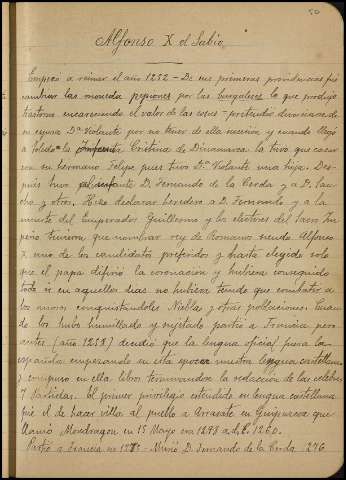 50
Alfonso X el Sabio
Empezó a reinar el año 1252 - De sus primeras providencias fué
cambiar las moneda pepiones por los burgaleses lo que produjo
trastorno encareciendo el valor de las cosas - pretendió divorciarse de
su esposa Dª Violante por no tener de ella sucesión y cuando llegó
a Toledo la Infanta Cristina de Dinamarca la tuvo que casar
con su hermano Felipe pues tuvo Dª Violante una hija. Des-
pués tuvo al infante D. Fernando de la Cerda y a D. San-
cho y otros. Hizo declarar heredero a D. Fernando y a la
muerte del Emperador Guillermo y los electores del Sacro Im-
perio tuvieron que nombrar rey de Romanos siendo Alfonso
X uno de los candidatos preferidos y hasta elegido solo
que el papa difirió la coronación y hubiera conseguido
todo si en aquellos dias no hubiera tenido que combatir a
los moros conquistandoles Niebla y otras poblaciones. Cuan-
do los hubo humillado y sujetado partió a Francia pero
antes (año 1252) decidió que la lengua oficial fuera la
española empezando en esta epoca nuestra lengua castellana
y compuso en ella libros terminandose la redacción de las celebres
7 Partidas. El primer privilegio estendido en lengua castellana
fué el de hacer villa al pueblo de Arrasate en Guipuzcoa que
llamó Mondragon en 15 Mayo era 1298 a. d. C. 1260.
Partió a Francia en 1275 - Murió D. Fernando de la Cerda 276